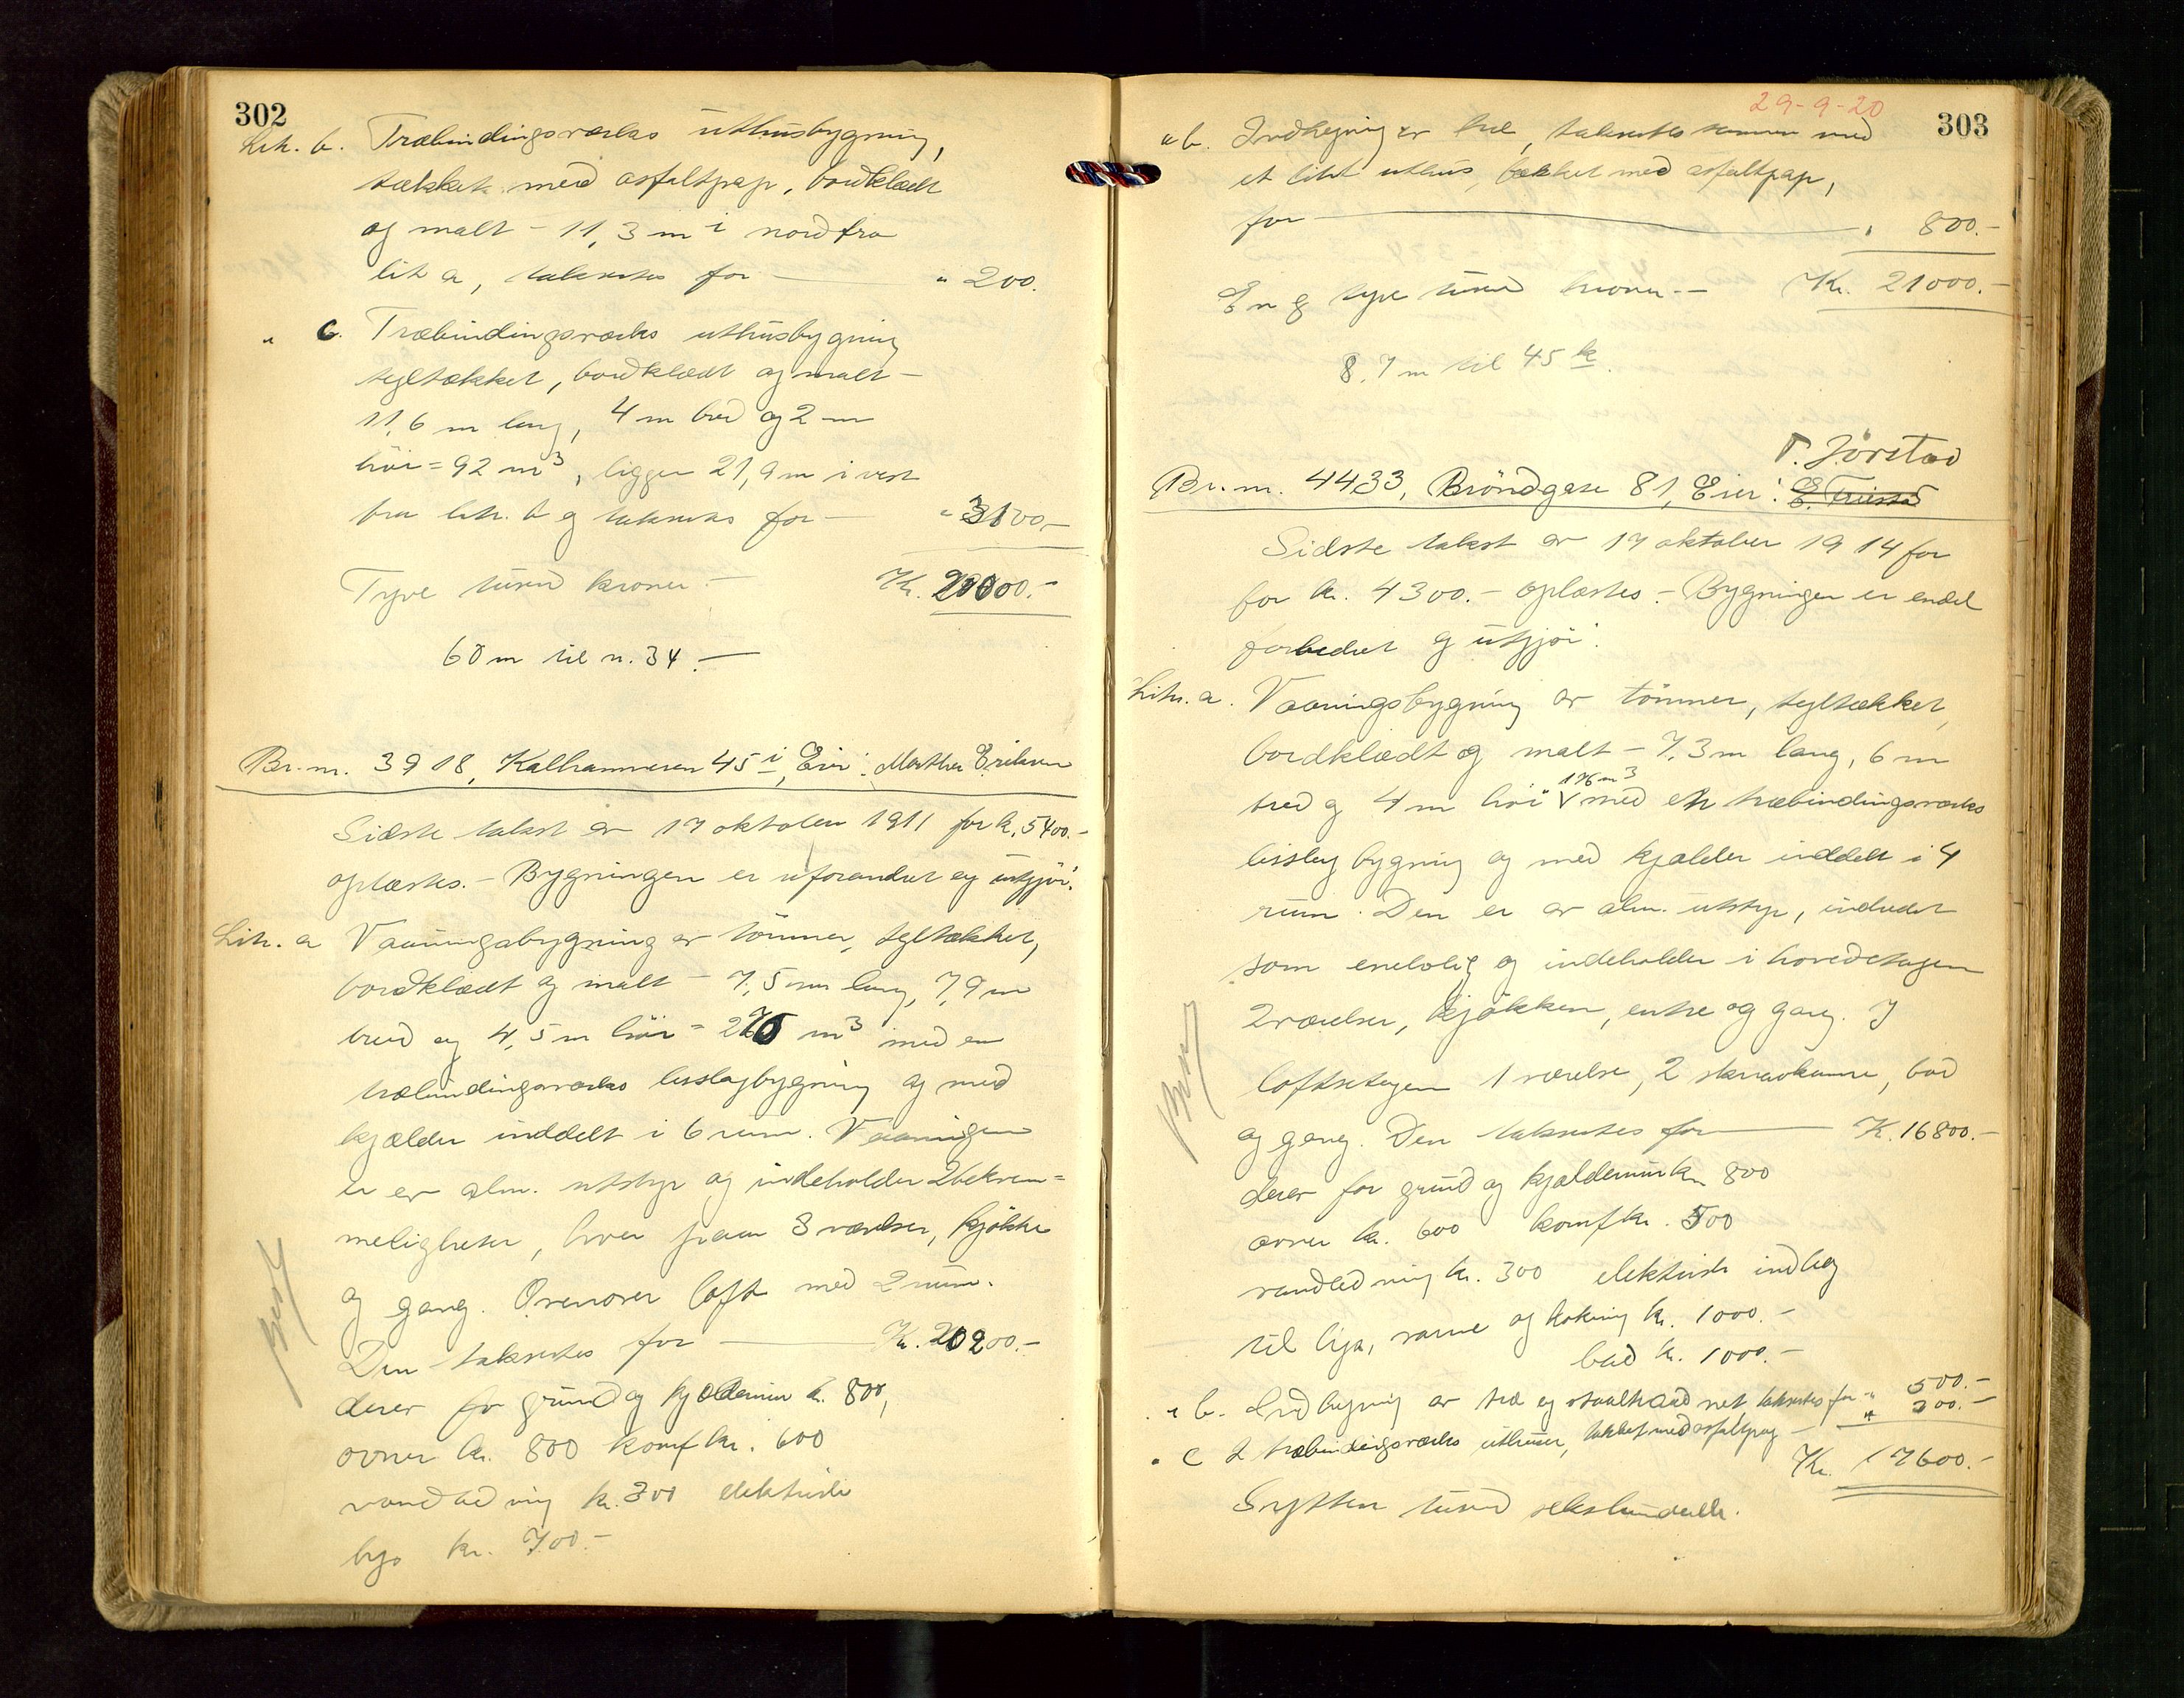 302
Litr. b. Træbindingsverks uthusbygning,
tækket med asfaltpap, bordklædt
og malt - 11,3 m i nord fra
lit a, takseres for " 200.
" c. Træbindingsverks uthusbygning
tegltækket, bordklædt og malt -
11,6 m lang, 4 m bred og 2 m
höi = 92 m³, ligger 21,9 m i vest
fra litr. b og takseres for - " 3100.-
Tyve tusend kroner.- Kr. 20000.-
60 m til n. 34.-
Br.nr. 3918, Kalhammeren 45 i, Eier: Marthe Eriksen
Sidste takst av 17 oktober 1911 for k. 5400.-
oplæstes. - Bygningen er uforandret og utgjör:
Litr. a Vaaningsbygning av tömmer, tegltækket,
bordklædt og malt - 7,5 m lang, 7,9 m
bred og 4,5 m höi = 276 m³ med en
træbindingsverks bislagbygning og med
kjælder inddelt i 6 rum. Vaaningen
er av alm. utstyr og indeholder 2 bekvem=
meligheter, hver paa 3 værelser, kjökken
og gang. Ovenover loft med 2 rum.
Den takseres for Kr. 20200.-
derav for grund og kjældermur k. 800,
ovner kr. 800 komf kr. 600
vandledning kr. 300 elektrisk
lys kr. 700.-
Besk
29-9-20
303
" b. Indhegning av træ, takseres sammen med
et litet uthus, tækket med asfaltpap,
for " 800.-
En og tyve tusend kroner.- Kr. 21000.-
8.7 m til 45 k.
T. Jörstad
Br.nr. 4433, Bröndgate 81, Eier:
Sidste takst av 17 oktober 1914 for
for kr. 4300.- oplæstes.- Bygningen er endel
forbedret og utgjör:
Litr. a. Vaaningsbygning av tömmer, tegltækket,
bordklædt og malt - 7,3 m lang, 6 m
bred og 4 m höi 176 m³ med en træbindingsverks
bislag bygning og med kjælder inddelt i 4
rum. Den er av alm. utstyr, indredet
som enebolig og indeholder i hovedetagen
2 værelser, kjökken, entre og gang. I
loftsetagen 1 værelse, 2 skraakamre, bad
og gang. Den takseres for K. 16800.-
derav for grund og kjældermur kr. 800
ovner kr. 600 komf kr. 500
vandledning kr. 300 elektrisk indlæg
til lys, varme og koking kr. 1000.-
bad kr. 1000.-
" b. Indhegning av træ og staaltraad net takseres for " 500.-
" c 2 træbindingsverks uthuser, tækket med asfaltpap - " 300.-
Kr. 17600.-
Sytten tusend sekshundrede.
Besk